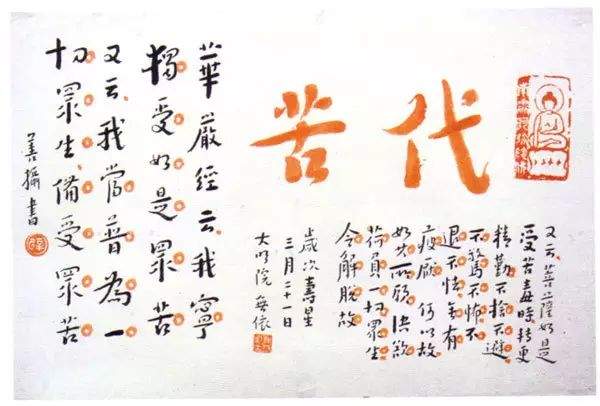 代苦
又云、菩薩如是
受苦毒時轉更
精勤不捨不避
不驚不怖不
退不怯無有
疲厭何以故
如其所願決欲
荷負一切眾生
令解脫故
歲次壽星
三月二十一日
大明院 無依
華嚴經云、我寧
獨受如是眾苦
又云、我當普為一
切眾生備受眾苦
善攝書